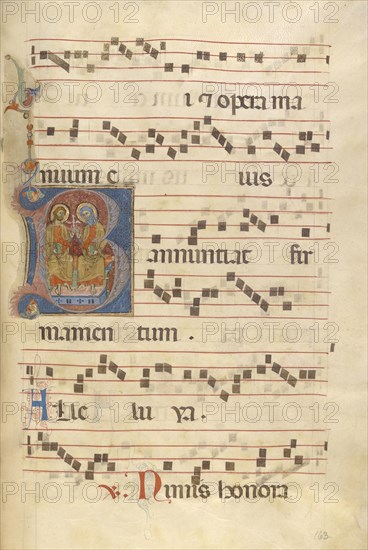 i ⁊ opera ma
nuum e ius
annuntiat fir
mamen tum .
Alle lu ya .
℣. Nimis honora
163